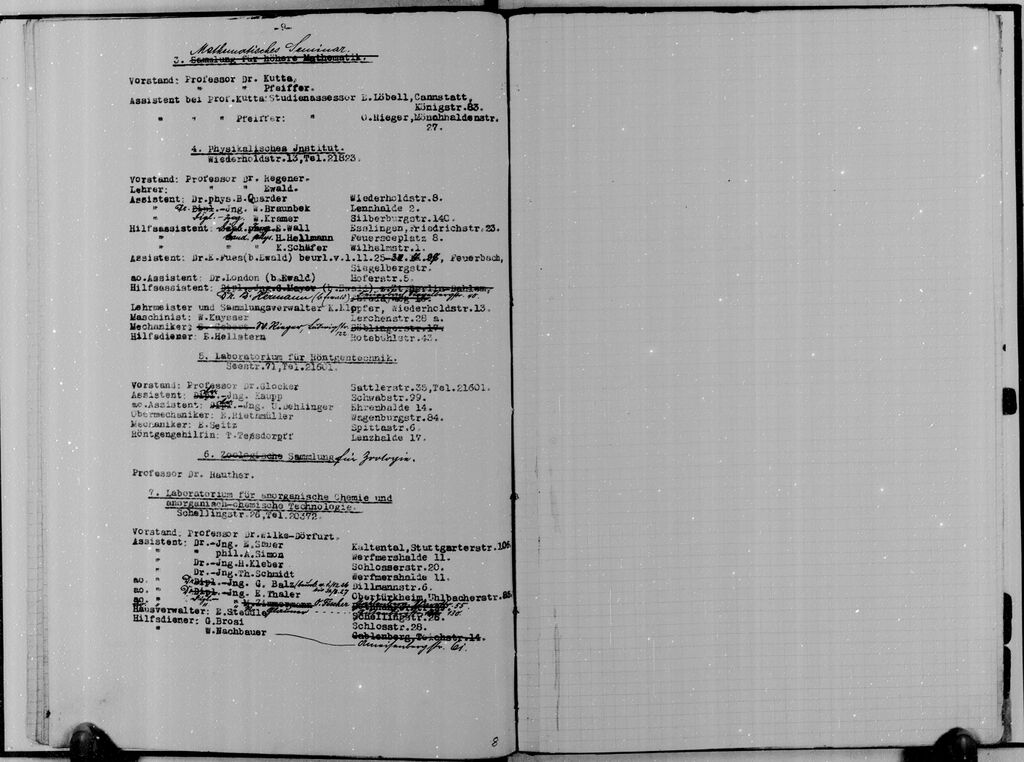 -9-
Mathematisches Seminar.
3. Sammlung für höhere Mathematik.
Vorstand: Professor Dr. Kutta.
" " Pfeiffer.
Assistent bei Prof.Kutta:Studienassessor E.Löbell,Cannstatt,
Königstr.83.
" " " Pfeiffer: " O.Rieger,Mönchhaldenstr.
27.
4. Physikalisches Jnstitut.
Wiederholdstr.13,Tel.21823.
Vorstand: Professor Dr. Regener.
Lehrer: " " Ewald.
Assistent: Dr.phys.B.Quarder Wiederholdstr.8.
" Dr. Dipl.-Jng. W.Braunbek Lenzhalde 2.
" Dipl.-Jng. W.Kramer Silberburgstr.140.
Hilfsassistent: Dipl. Jng. E.Wall Esslingen,Friedrichstr.23.
" cand. phys. H.Hellmann Feuerseeplatz 8.
" " " K.Schäfer Wilhelmstr.1.
Assistent: Dr.E.Fues(b.Ewald) beurl.v.1.11.25- Feuerbach,
Siegelbergstr.
ao.Assistent: Dr.London (b.Ewald) Hoferstr.5.
Hilfsassistent: Dipl.Jng.G.Mayer (b.Ewald) z.Zt.Berlin-Dahlem,
Dr. Hermann (b. Ewald)
Lehrmeister und Sammlungsverwalter K.Klopfer, Wiederholdstr.13.
Maschinist: W.Kaysser Lerchenstr.28 a.
Mechaniker: W. Rieger, Ludwigstr. Böblingerstr.17.
122
Hilfsdiener: E.Hellstern Rotebühlstr.43.
5. Laboratorium für Röntgentechnik.
Seestr.71,Tel.21601.
Vorstand: Professor Dr.Glocker Sattlerstr.33,Tel.21601.
Assistent: Dr. Dipl.-Jng. Kaupp Schwabstr.99.
ao.Assistent: Dr. Dipl.-Jng. U.Dehlinger Ehrenhalde 14.
Obermechaniker: K.Riethmüller Wagenburgstr.84.
Mechaniker: E.Seitz Spittastr.6.
Röntgengehilfin: T.Tessdorpff Lenzhalde 17.
6. Zoologische Sammlung für Zoologie.
Professor Dr. Rauther.
7. Laboratorium für anorganische Chemie und
anorganisch-chemische Technologie.
Schellingstr.26,Tel.20372.
Vorstand: Professor Dr.Wilke-Dörfurt.
Assistent: Dr.-Jng. E.Sauer Kaltental,Stuttgarterstr.106
" " phil.A.Simon Werfmershalde 11.
" Dr.-Jng.H.Kleber Schlosserstr.20.
" Dr.-Jng.Th.Schmidt Werfmershalde 11.
ao. " Dr. Dipl.-Jng. G. Balz Dillmannstr.6.
ao. " Dr. Dipl.-Jng. E.Thaler Obertürkheim,Uhlbacherstr.85
ao. " " W.Zimmermann O. Fischer 55
Hausverwalter: E.Steudle Schellingstr.26.
Hilfsdiener: G.Brosi Schlosstr.28.
" W.Nachbauer Gablenberg,Teichstr.14.
Ameisenbergstr. 61.
8